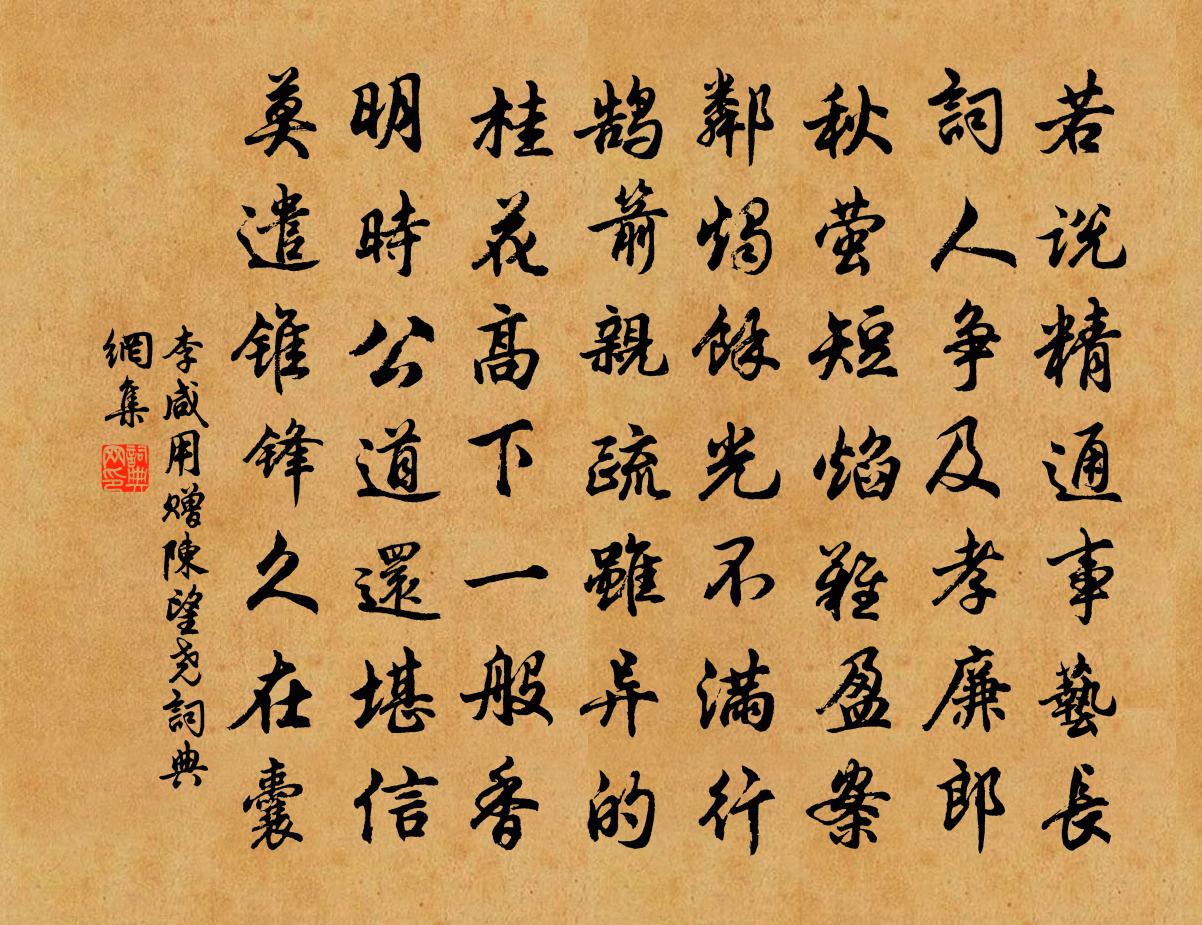 若说精通事藝長
詞人争及孝廉郎
秋萤短焰難盈案
鄰燭餘光不满行
鹄箭親疏雖异的
桂花高下一般香
明時公道還堪信
莫遣锥锋久在囊
李咸用赠陳望尭詞典
網集
詞典
网印